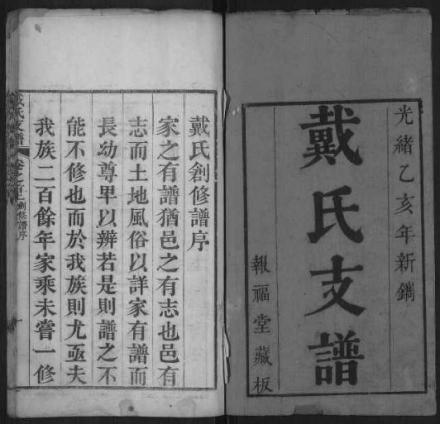 光緒乙亥年新鐫
戴氏支譜
報福堂藏板
戴氏創修譜序
家之有譜猶邑之有志也邑有
志而土地風俗以詳家有譜而
長幼尊卑以辨若是則譜之不
能不修也而於我族則尤亟夫
我族二百餘年家乘未嘗一修
戴氏支譜 卷之首 創修譜序